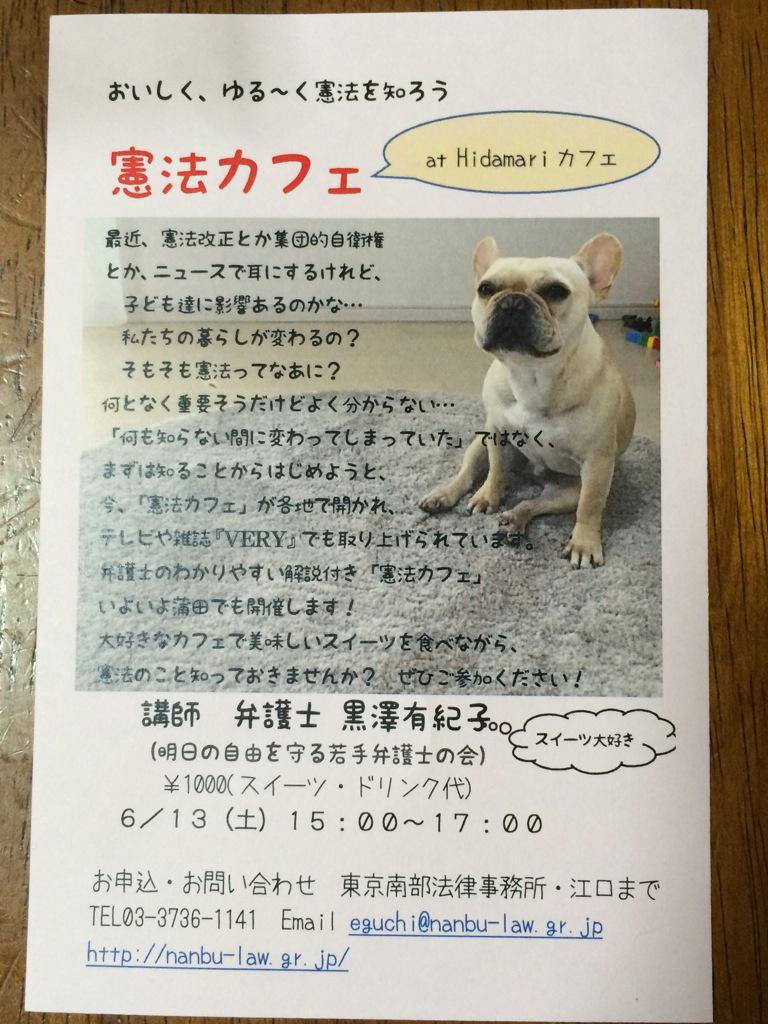 おいしく、ゆる～く憲法を知ろう
憲法カフェ
at Hidamari カフェ
最近、憲法改正とか集団的自衛権
とか、ニュースで耳にするけれど、
子ども達に影響あるのかな…
私たちの暮らしが変わるの？
そもそも憲法ってなあに？
何となく重要そうだけどよく分からない…
「何も知らない間に変わってしまっていた」ではなく、
まずは知ることからはじめようと、
今、「憲法カフェ」が各地で開かれ、
テレビや雑誌『VERY』でも取り上げられています。
弁護士のわかりやすい解説付き「憲法カフェ」
いよいよ蒲田でも開催します！
大好きなカフェで美味しいスイーツを食べながら、
憲法のこと知っておきませんか？　ぜひご参加ください！
講師　弁護士 黒澤有紀子
スイーツ大好き
(明日の自由を守る若手弁護士の会)
￥1000(スイーツ・ドリンク代)
６／13（土）１５：００～１７：００
お申込・お問い合わせ　東京南部法律事務所・江口まで
TEL03-3736-1141　Email eguchi@nanbu-law.gr.jp
http://nanbu-law.gr.jp/